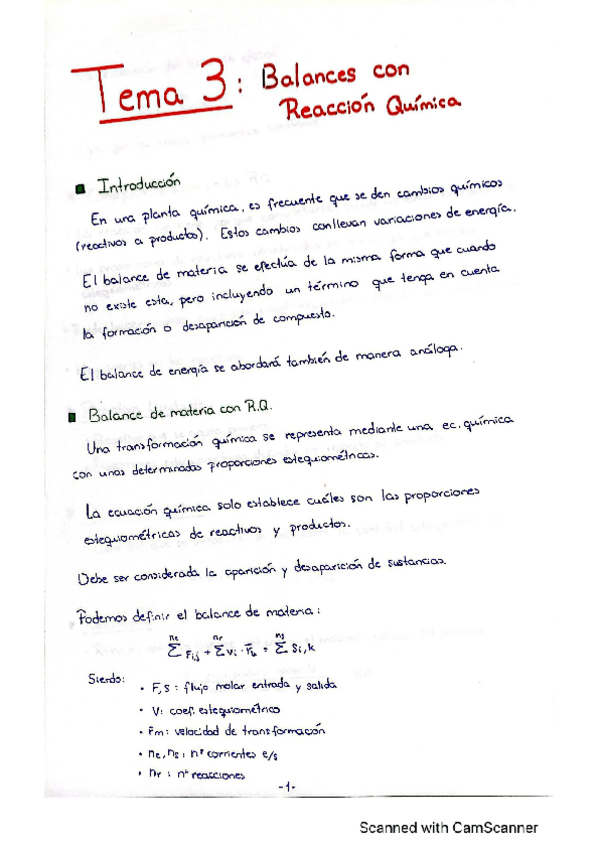 Tema 3: Balances con
Reacción Química
Introducción
En una planta química, es frecuente que se den cambios químicos
(reactivos a productos). Estos cambios conllevan variaciones de energía.
El balance de materia se efectúa de la misma forma que cuando
no existe esta, pero incluyendo un término que tenga en cuenta
la formación o desaparición de compuesto.
El balance de energía se abordará también de manera análoga.
Balance de materia con R.Q.
Una transformación química se representa mediante una ec. química
con unas determinadas proporciones estequiométricas.
La ecuación química solo establece cuáles son las proporciones
estequiométricas de reactivos y productos.
Debe ser considerada la aparición y desaparición de sustancias.
Podemos definir el balance de materia:
Σ Fi,j + Σ Vi · = Σ Si,k
Siendo:
• F, S : flujo molar entrada y salida
• V: coef. estequiométrico
• r̄m: velocidad de transformación
• ne, ns : nº corrientes e/s
• nr : nº reacciones
-1-
Scanned with CamScanner